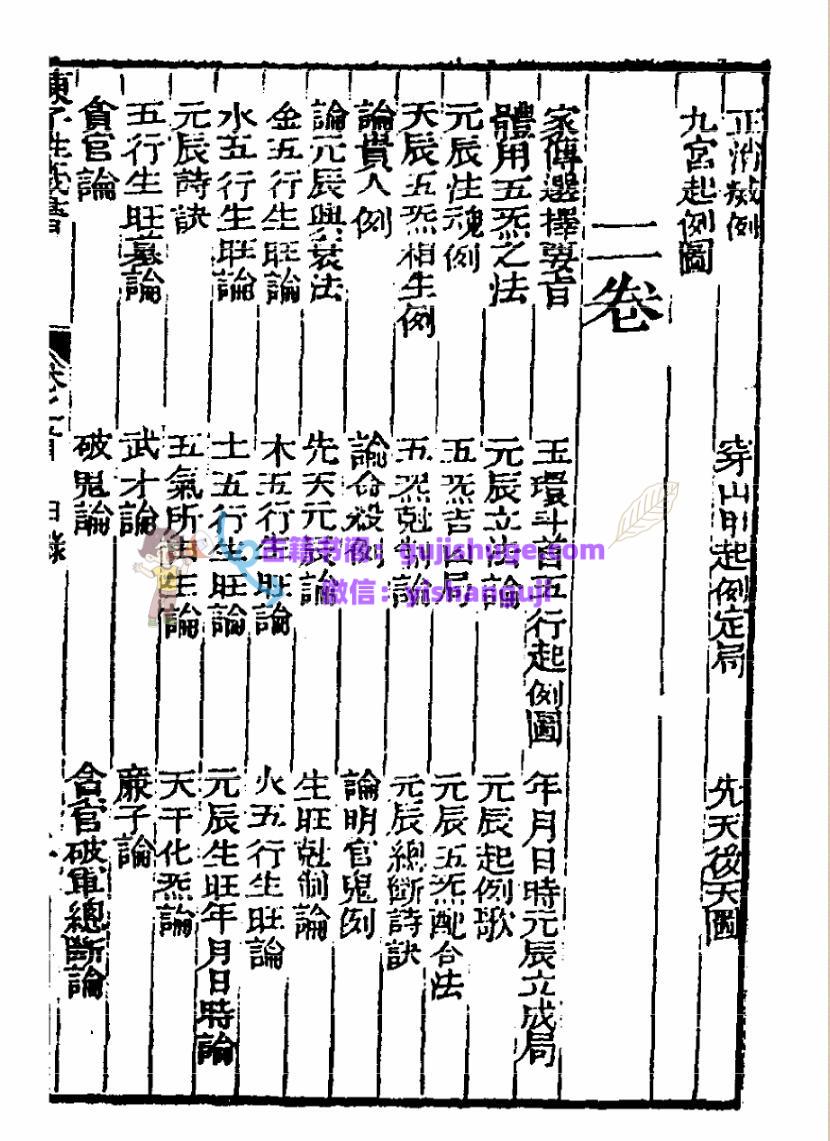 正消滅例 穿山甲起例定局 先天後天圖
九宮起例圖
二卷
家傳選擇要旨 玉環斗首五行起例圖 年月日時元辰立成局
體用五炁之法 元辰立法論 元辰起例歌
元辰性魂例 五炁吉凶局 元辰五炁配合法
天辰五炁相生例 五炁尅制論 元辰總斷詩訣
論貴人例 論命殺例 論明官鬼例
論元辰興衰法 先天元辰論 生旺尅制論
金五行生旺論 木五行生旺論 火五行生旺論
水五行生旺論 土五行生旺論 元辰生旺年月日時論
元辰詩訣 五氣所由生論 天干化炁論
五行生旺墓論 武才論 廉子論
貪官論 破鬼論 合官破軍總斷論
卷之首 目錄
古籍书阁：gujishuge.com
微信：yishanguji